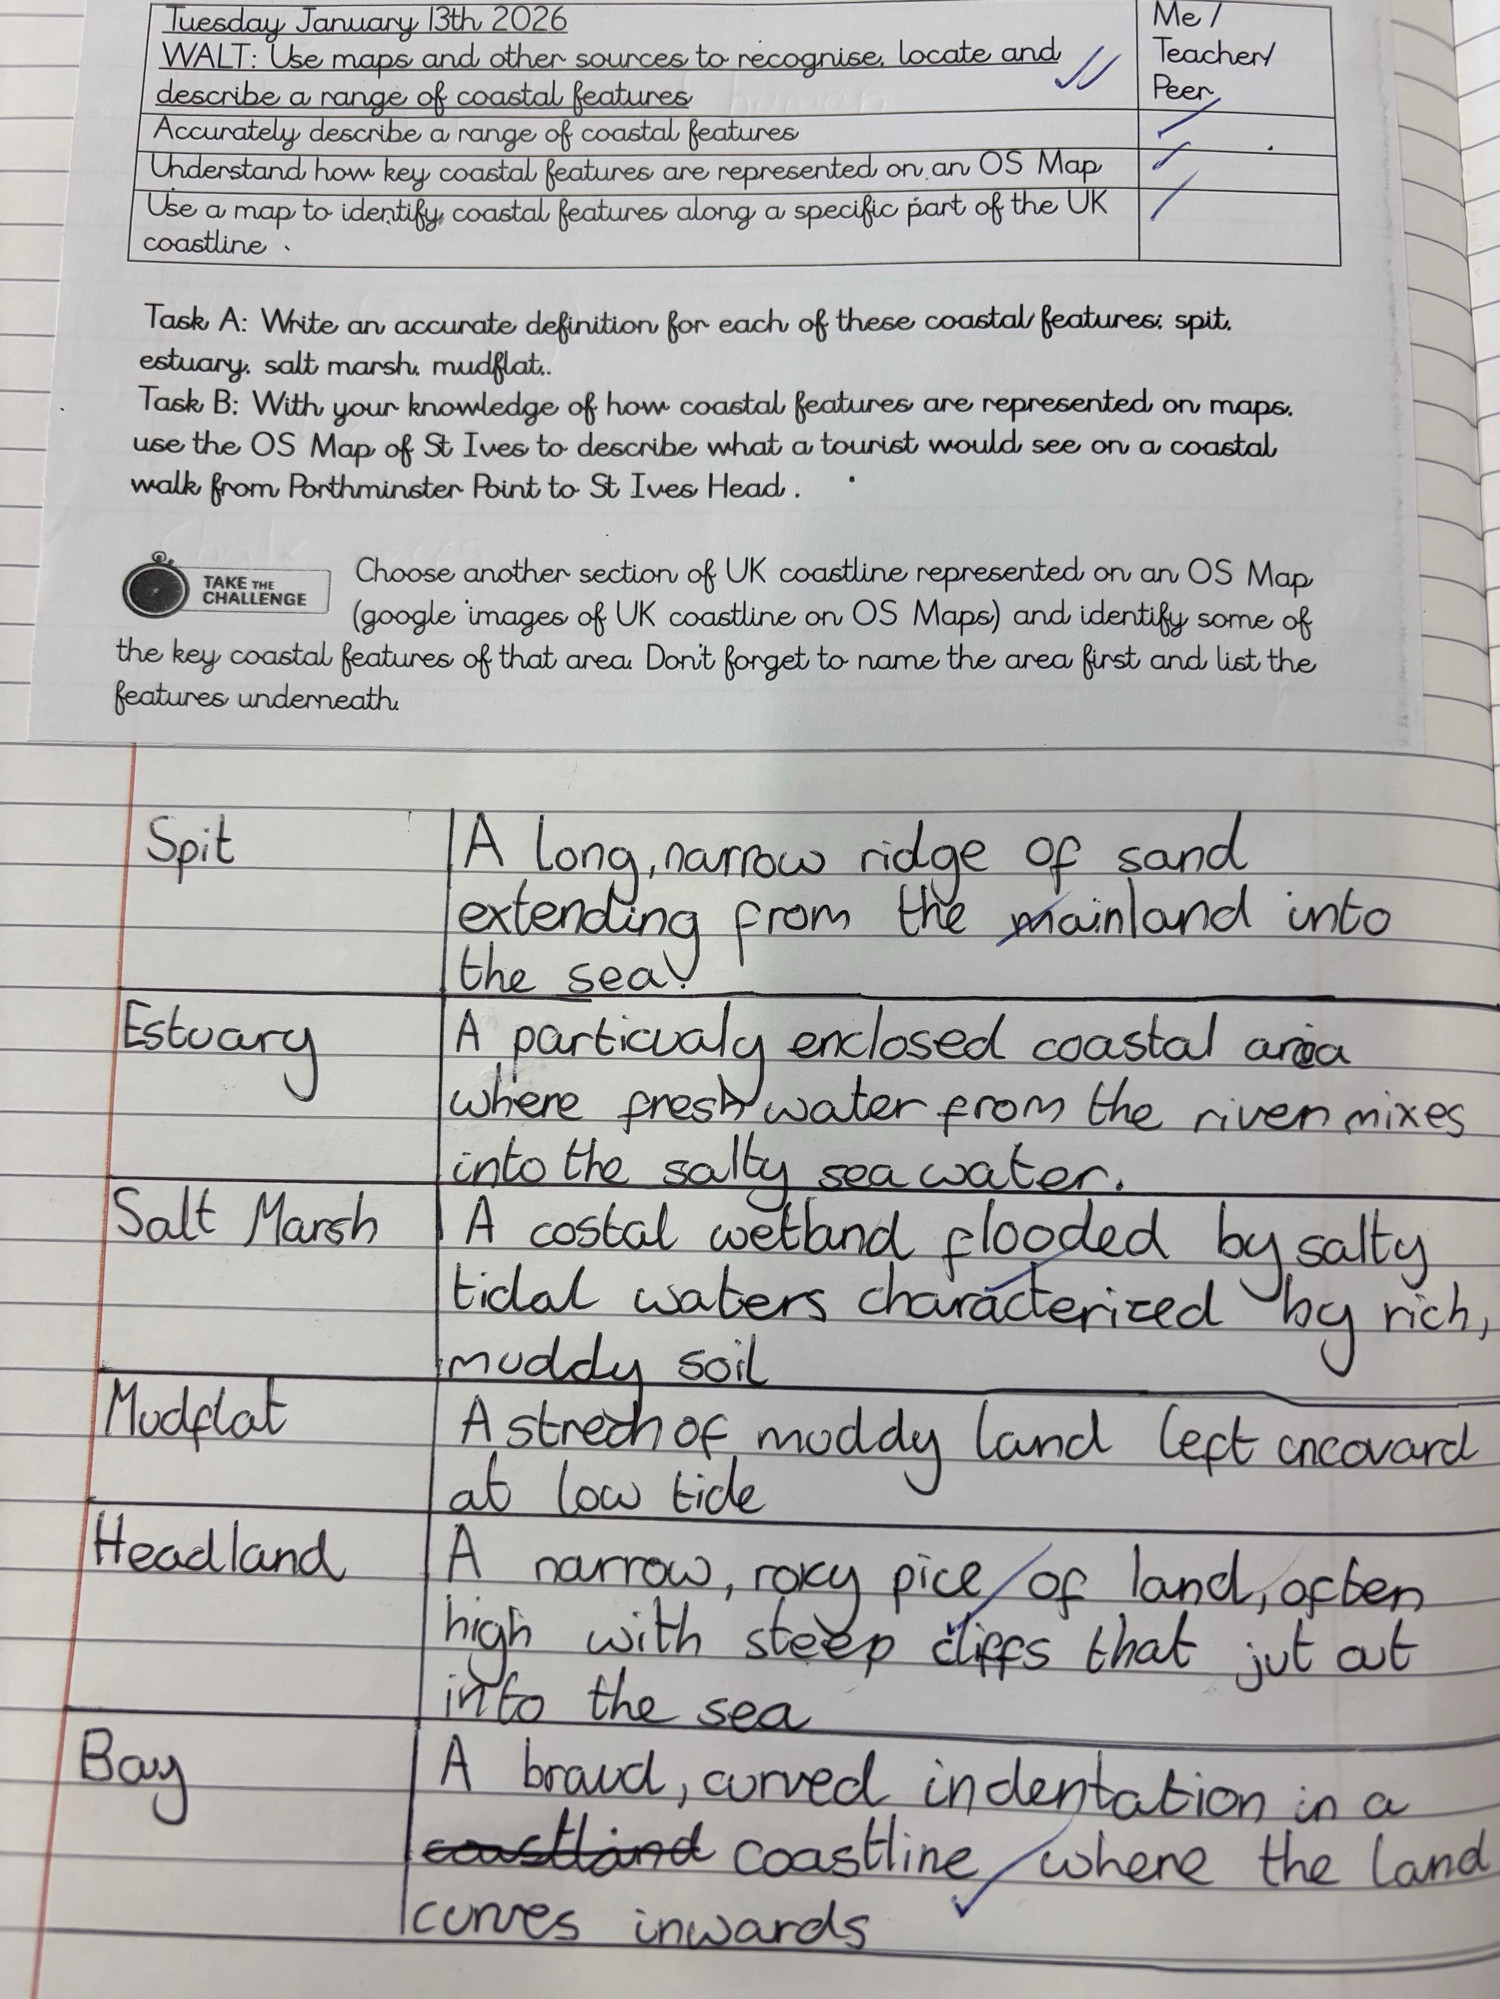 Tuesday January 13th 2026
WALT: Use maps and other sources to recognise, locate and
describe a range of coastal features
Me /
Teacher/
Peer
Accurately describe a range of coastal features
Understand how key coastal features are represented on an OS Map
Use a map to identify coastal features along a specific part of the UK
coastline
Task A: Write an accurate definition for each of these coastal features: spit,
estuary, salt marsh, mudflat..
Task B: With your knowledge of how coastal features are represented on maps,
use the OS Map of St Ives to describe what a tourist would see on a coastal
walk from Porthminster Point to St Ives Head.
TAKE THE
CHALLENGE
Choose another section of UK coastline represented on an OS Map
(google images of UK coastline on OS Maps) and identify some of
the key coastal features of that area. Don't forget to name the area first and list the
features underneath.
Spit
A long, narrow ridge of sand
extending from the mainland into
the sea.
Estuary
A particualy enclosed coastal area
where fresh water from the river mixes
into the salty sea water.
Salt Marsh
A costal wetland flooded by salty
tidal waters characterized by rich,
muddy soil
Mudflat
A strech of muddy land left uncovard
at low tide
Headland
A narrow, rocky pice of land, often
high with steep cliffs that jut out
into the sea
Bay
A braud, curved indentation in a
coastland coastline where the land
curves inwards